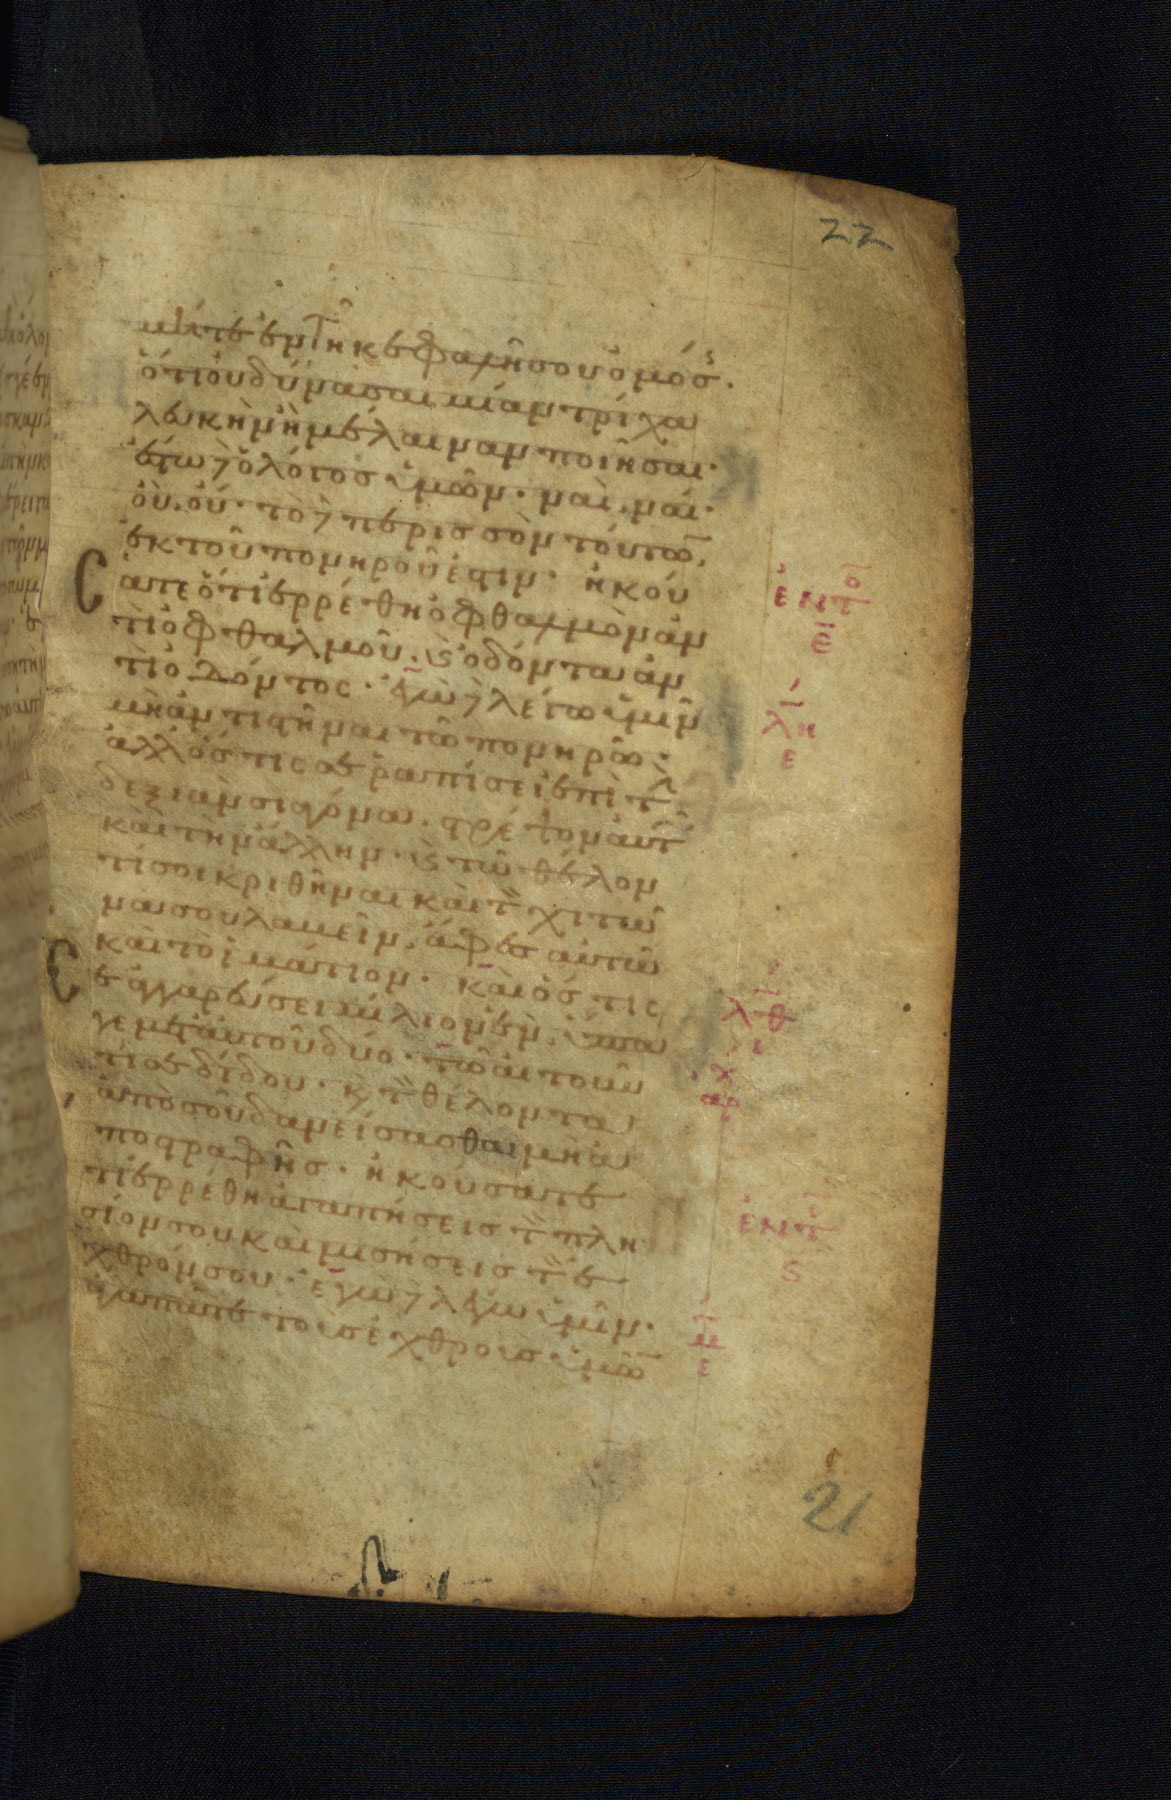 22
μήτε ἐν τῆ κεφαλῆ σου ὀμόσης.
ὅτι οὐ δύνασαι μίαν τρίχα
λευκὴν ἢ μέλαιναν ποιῆσαι.
ἔστω δὲ ὁ λόγος ὑμῶν. ναὶ, ναί.
οὐ, οὔ. τὸ δὲ περισσὸν τούτων,
ἐκ τοῦ πονηροῦ ἐστιν. ἠκού
σατε ὅτι ἐρρέθη ὀφθαλμὸν ἀν
τὶ ὀφθαλμοῦ. καὶ ὀδόντα ἀν
τὶ ὀδόντος. ἐγὼ δὲ λέγω ὑμῖν
μὴ ἀντιστῆναι τῶ πονηρῶ.
ἀλλ' ὅστις σε ραπίσει ἐπὶ τὴν
δεξιὰν σιαγόνα. στρέψον αὐτῶ
καὶ τὴν ἄλλην. καὶ τῶ θέλον
τί σοι κριθῆναι καὶ τὸν χιτῶ
να σου λαβεῖν, ἄφες αὐτῶ
καὶ τὸ ἱμάτιον. καὶ ὅστις
ἐγγαρεύσει μίλιον ἓν, ὕπα
γε μετ' αὐτοῦ δύο. τῶ αἰτοῦν
τί σε δίδου. καὶ τὸν θέλοντα
ἀπὸ σοῦ δανείσασθαι μὴ ἀ
ποστραφῆς. ἠκούσατε
τι ἐρρέθη ἀγαπήσεις τὸν πλη
σίον σου καὶ μισήσεις τὸν ἐ
χθρόν σου. ἐγὼ δὲ λέγω ὑμῖν.
ἀγαπᾶτε τοὺς ἐχθροὺς ὑμῶν
ἐντολ
ε
λη
ε
λθ
ι
ἀρχ
ἐντολ
ς
μ
ε
21